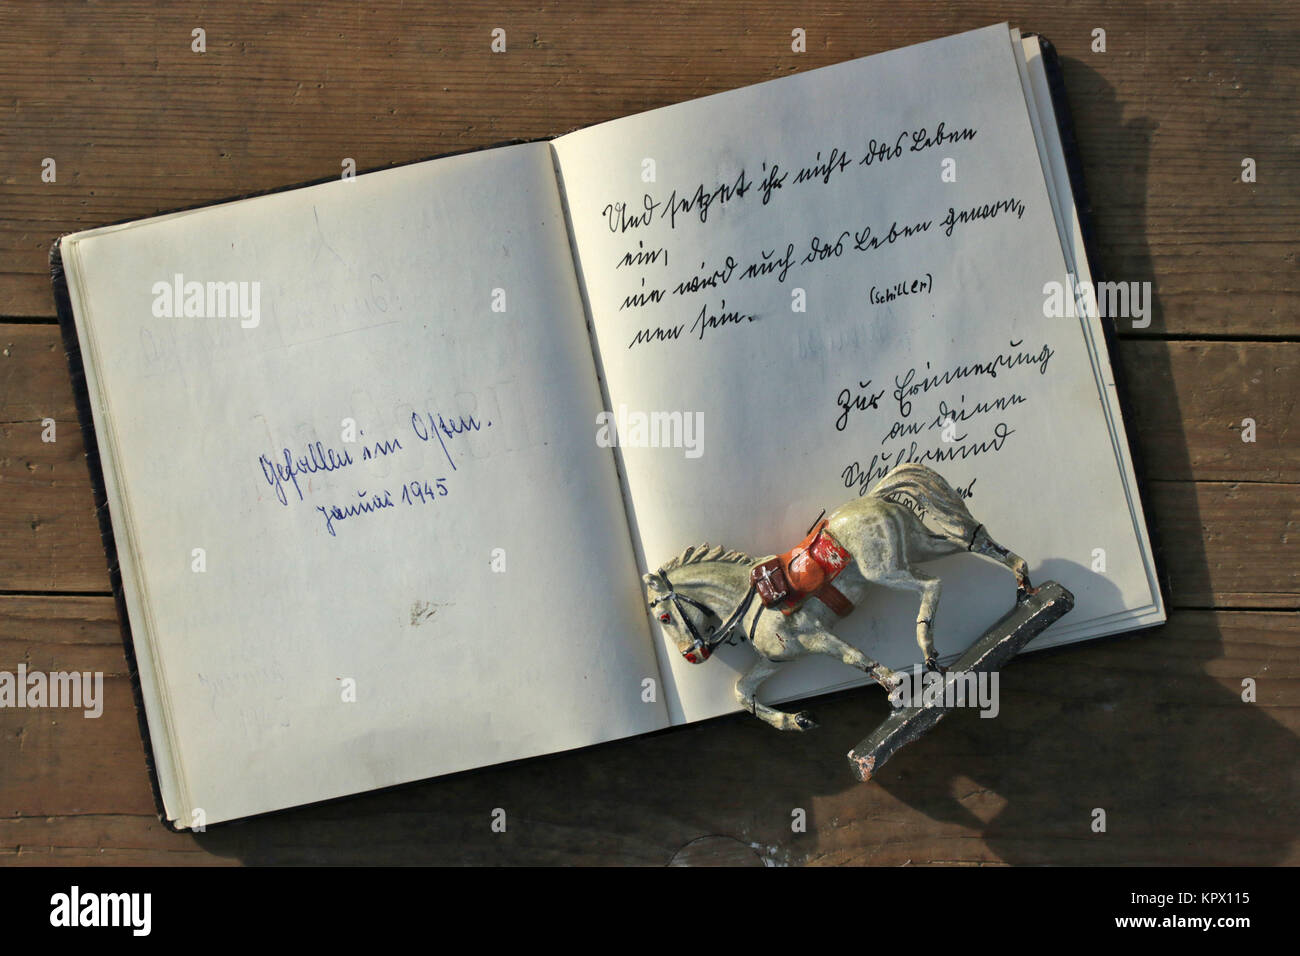 Gefallen im Osten.
Januar 1945
Und setzet ihr nicht das Leben
ein,
nie wird euch das Leben gewon„
nen sein.
(Schiller)
Zur Erinnerung
an deinen
Schulfreund
alamy
alamy stock photo
Image ID: KPX115
www.alamy.com